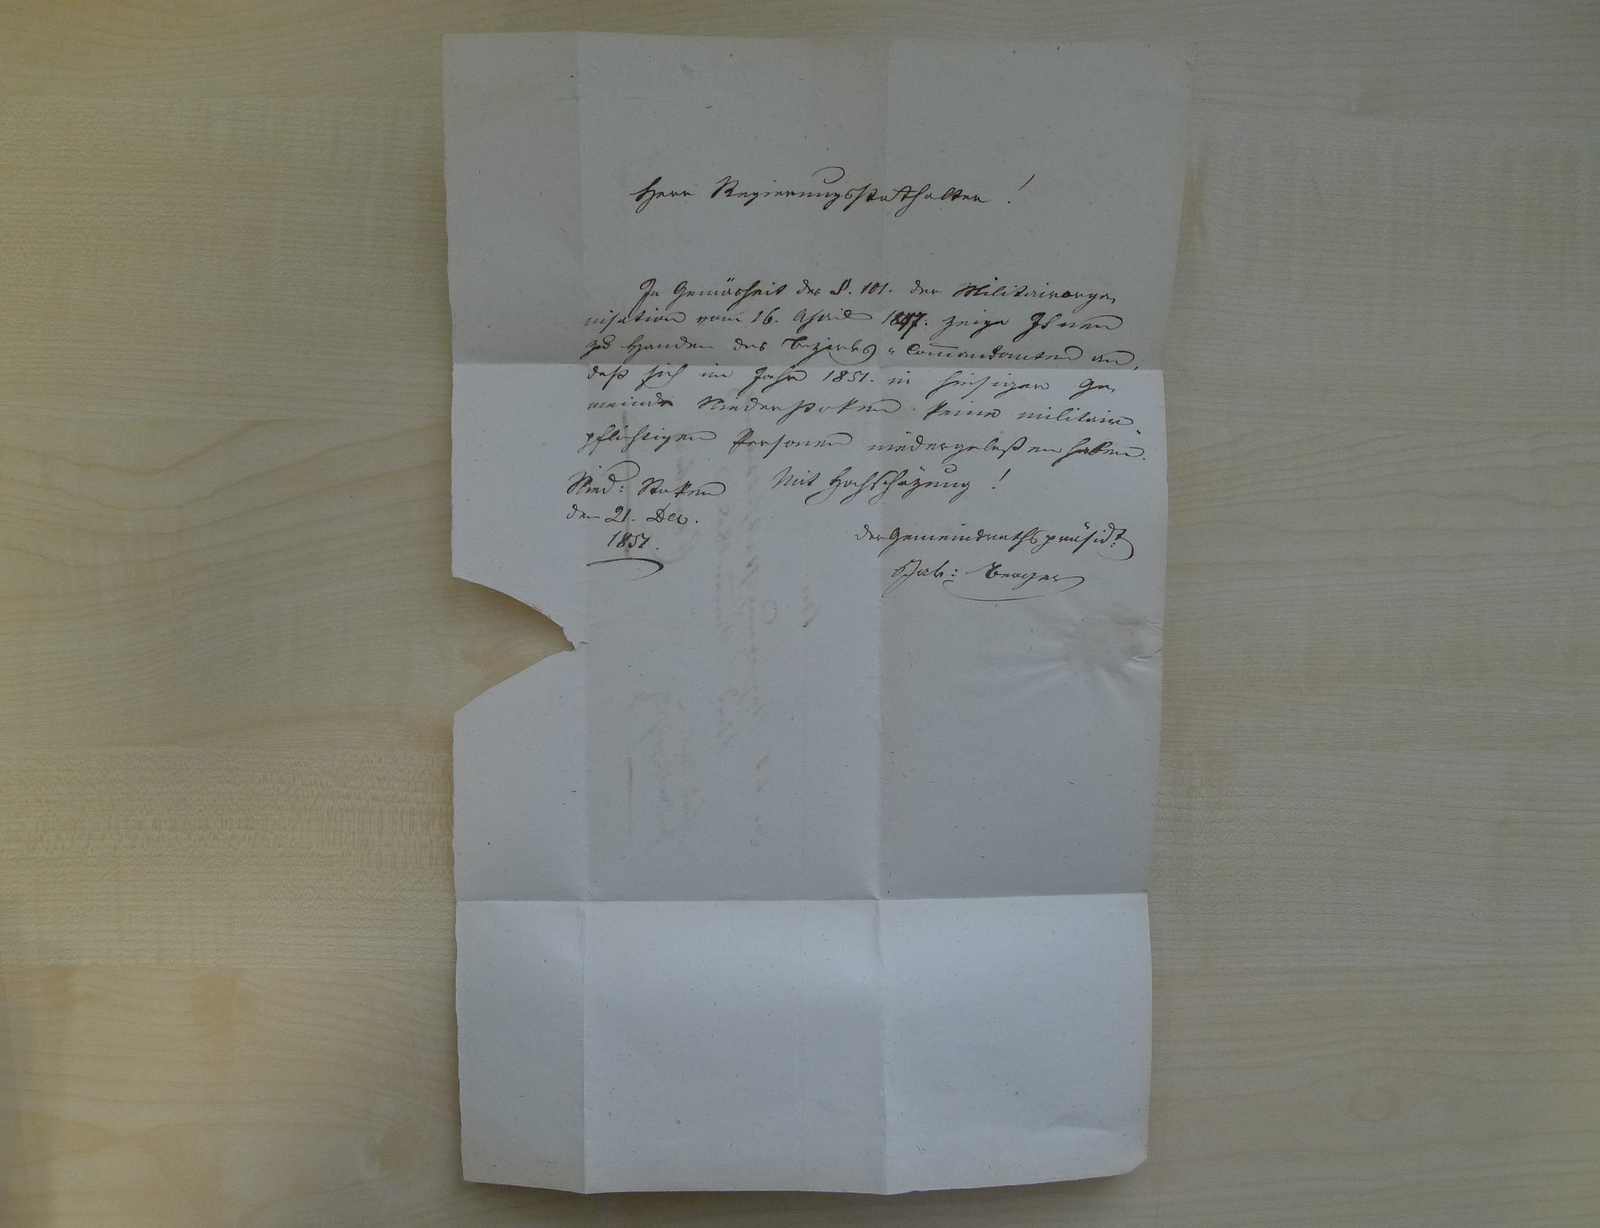 Herr Regierungsstatthalter!
In Gemäsheit des §. 101. der Militairorga,
nisation vom 16. April 1847. zeige Ihnen
zu Handen des Bezirks-Commandanten an,
daß sich im Jahr 1851. in hiesiger Ge,
meinde Niederstoken keine militair-
pflichtigen Personen niedergelaßen haben.
Mit Hochschäzung!
Nied: Stoken
den 21. Dec.
1851.
der Gemeindrathspräsidt:
Jak: